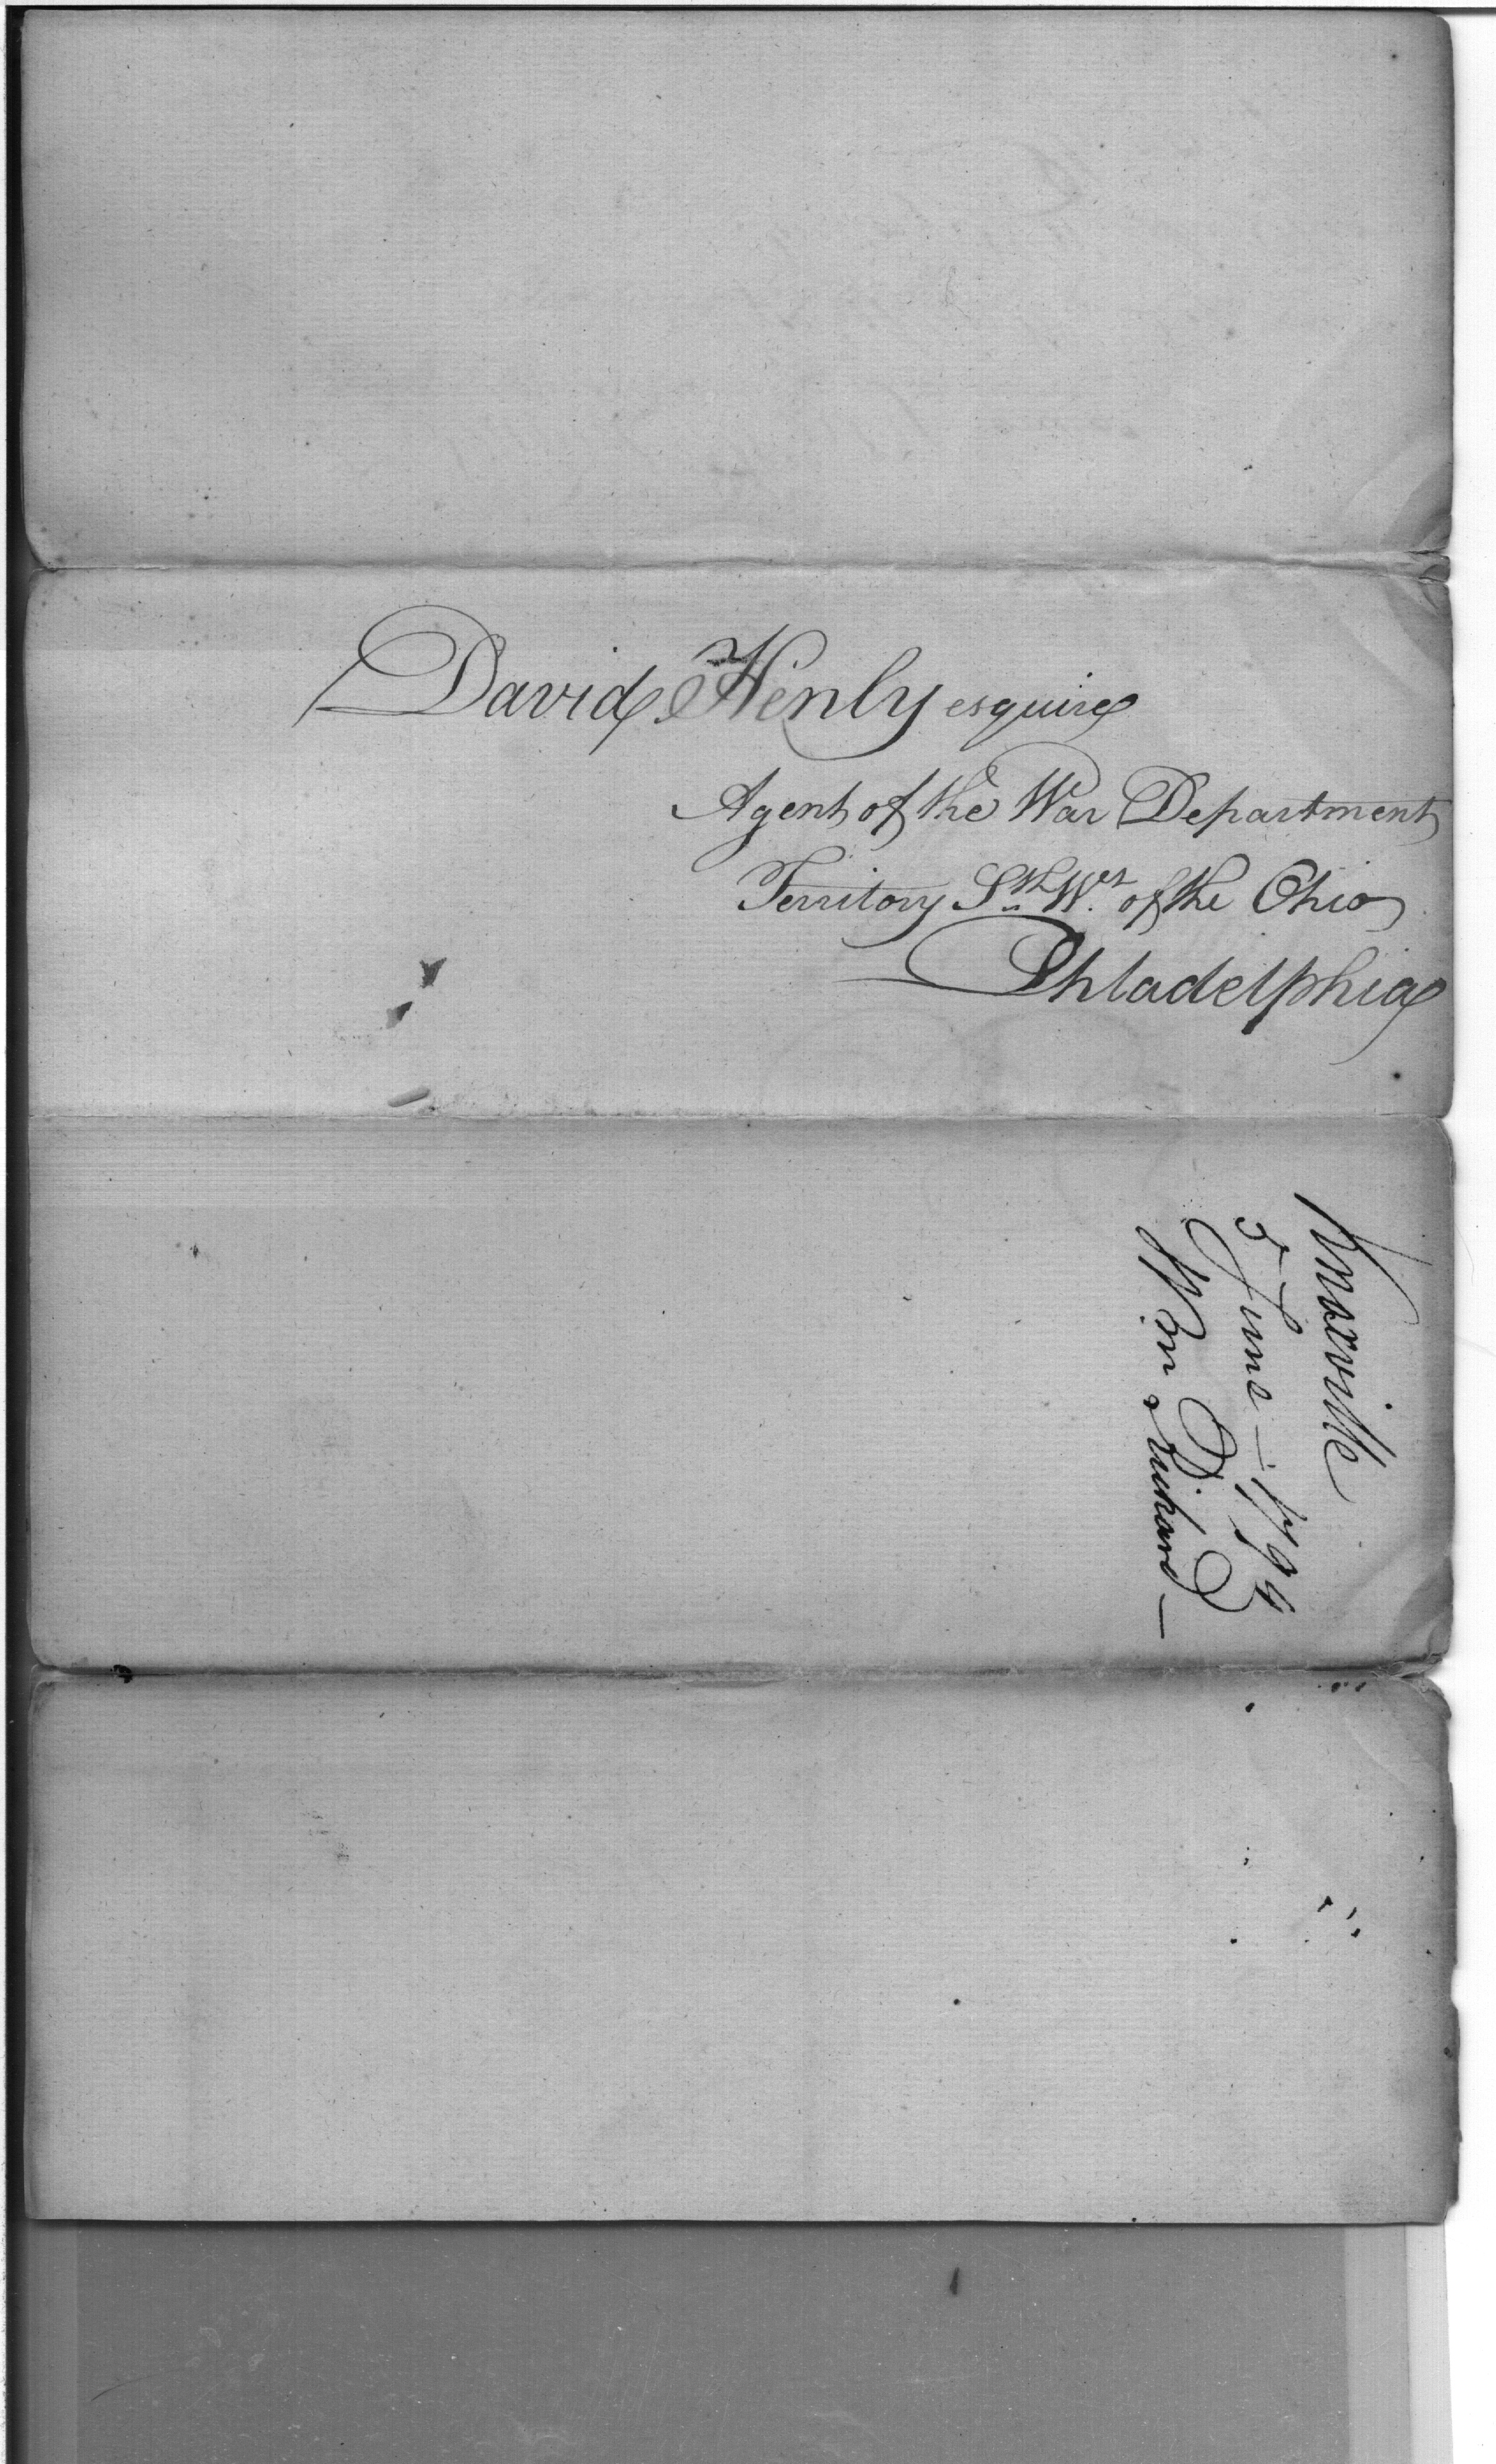 David Henly esquire
Agent of the War Department
Territory Sth Wst of the Ohio
Phladelphia
Knoxville
5 June — 1794
Wm Rickard —